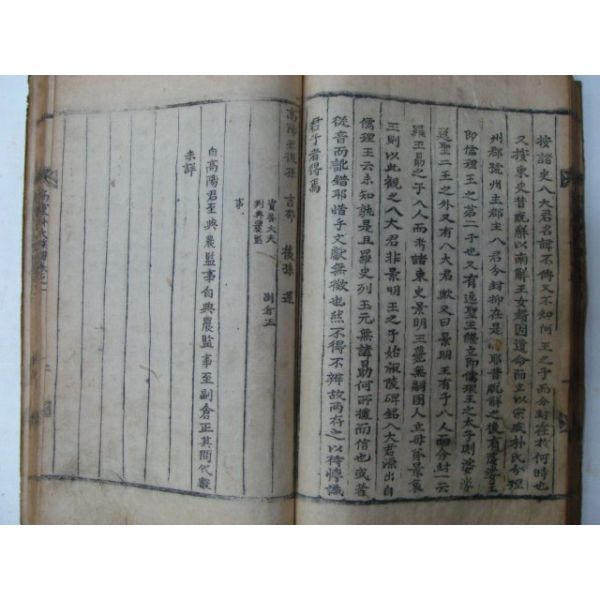 按諸史八大君名諱不傳又不知何王之子而分封在於何時也
又按東史昔脫解以南解王女壻因遺命而立以宗戚朴氏分理
州郡號州主郡主八君分封抑在是耶昔脫解之後有婆娑王
即儒理王之第二子也又有逸聖王繼立即儒理王之太子則婆娑
逸聖二王之外又有八大君歟又曰景明王有子八人而分封云
羅王昜之子八人而考諸東史景明王薨無嗣國人立母弟景哀
王則以此觀之八大君非景明王之子始祖陵碑銘八大君派出自
儒理王云未知孰是且羅史列王元無諱昜助何所據而信也或者
從音而訛錯耶惜乎文獻無徵也然不得不辨故兩存之以待博識
君子者得焉
高陽王後孫 言郁 後孫 還
資善大夫 判典農監事
副倉正
自高陽君至典農監事自典農監事至副倉正其間代數
未詳